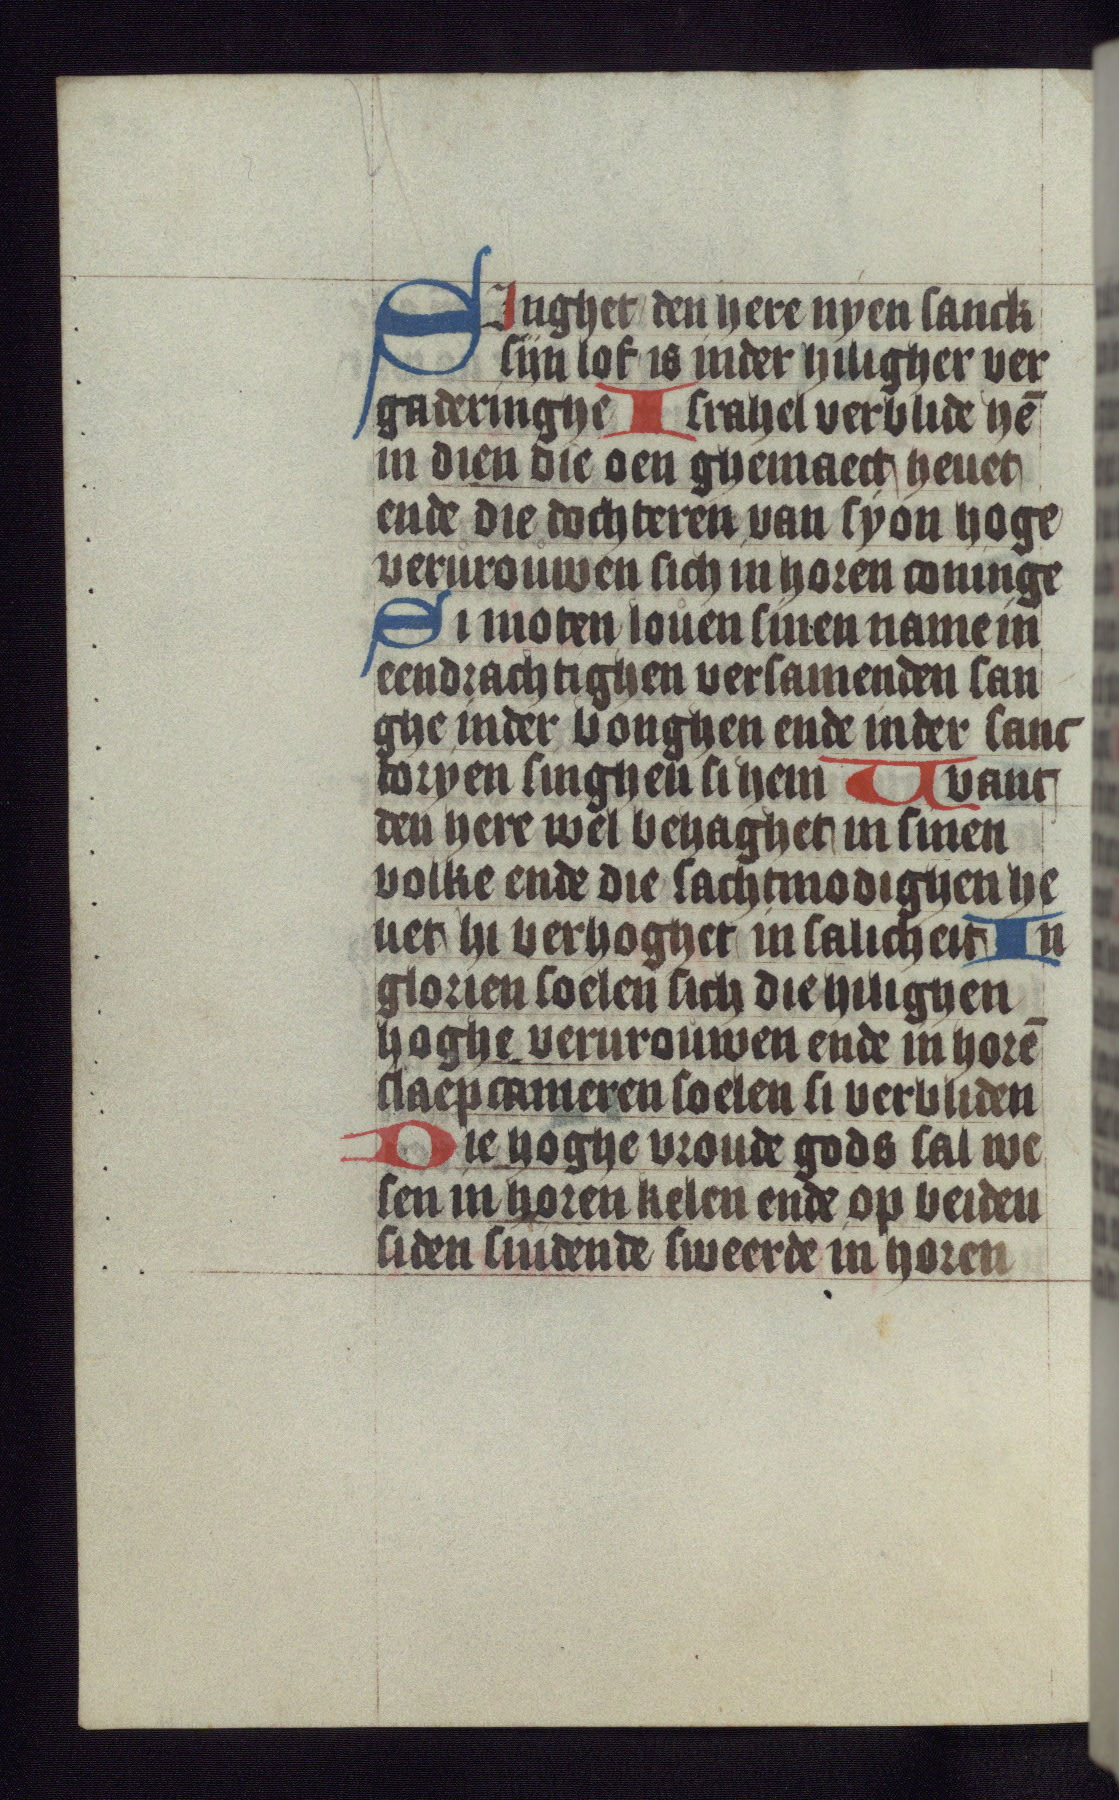 SInghet den here nyen sanck
sijn lof is inder hiligher ver
gaderinghe Israhel verblide hē
in dien die oen ghemaect heuet
ende die dochteren van syon hoge
verurouwen sich in horen coninge
Si moten louen sinen name in
eendrachtighen versamenden san
ghe inder bonghen ende inder sanc
toryen singhen si hem Uvant
den here wel behaghet in sinen
volke ende die sachtmodighen he
uet hi verhoghet in salicheit In
glorien soelen sich die hilighen
hoghe verurouwen ende in horē
slaepcameren soelen si verbliden
Die hoghe vroude gods sal we
sen in horen kelen ende op beiden
siden snidende sweerde in horen